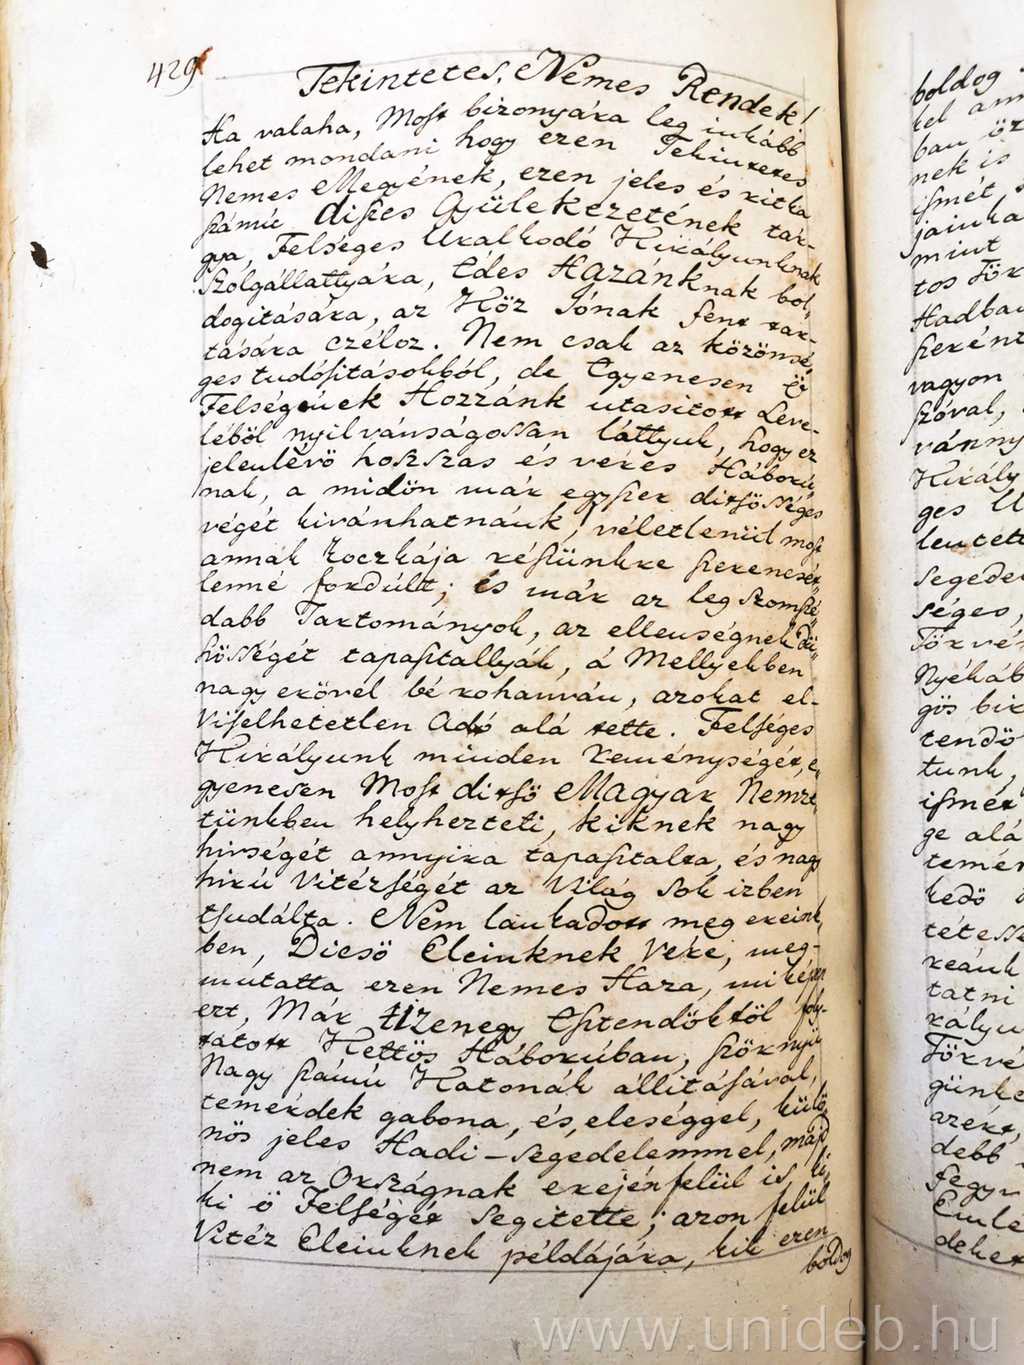 429
Tekintetes, Nemes Rendek!
Ha valaha, Most bizonyára leg inkább
lehet mondani hogy ezen Tekintetes
Nemes Megyének, ezen jeles és ritka
számú diszes Gyülekezetének tár-
gya, Felséges Uralkodó Királyunknak
Szólgállattyára, Édes Hazánknak bol-
dogitására, az Köz Jónak fent tar-
tására czéloz. Nem csak az közönsé-
ges tudósitásokból, de Egyenesen Ő
Felségének Hozzánk utasitott Leve-
léböl nyilvánságossan láttyuk, hogy ez
jelenlévö hoszszas és veres Háború-
nak, a midön már egyszer ditsösséges
végét kivánhatnánk, véletlenül most
annak koczkája részünkre szerencsét-
lenné fordúlt; és már az leg szomszé-
dabb Tartományok, az ellenségnek dü-
hösségét tapasztallyák, á Mellyekben
nagy erövel bé rohanván, azokat el-
viselhetetlen Adó alá tette. Felséges
Királyunk minden reménységét, e-
gyenesen Most ditsö Magyar Nemze-
tünkben helyhezteti, kiknek nagy
hivségét annyira tapasztalta, és nagy
hirü Vitézségét az Világ sok izben
tsudálta. Nem lankadott meg ereink-
ben, Dicsö Eleinknek Vére, meg-
mutatta ezen Nemes Haza, miképen
ezt, Már tizenegy Esztendöktöl foly-
tatott Kettös Háborúban, szörnyü
Nagy számú Katonák állitásával,
temérdek gabona, és, eleséggel, külö-
nös jeles Hadi-segedelemmel, majd
nem az Országnak erején felül is, ki-
ki ö Felségét Segitette; azon felül
Vitéz Eleinknek példájára, kik ezen
boldog
boldog
nek is
ismét
mint
Hadban
vagyon
szóval,
Király
ges
séges,
tendö
tunk,
ismét
ge alá
kedö
tatni
azért,
debb
www.unideb.hu